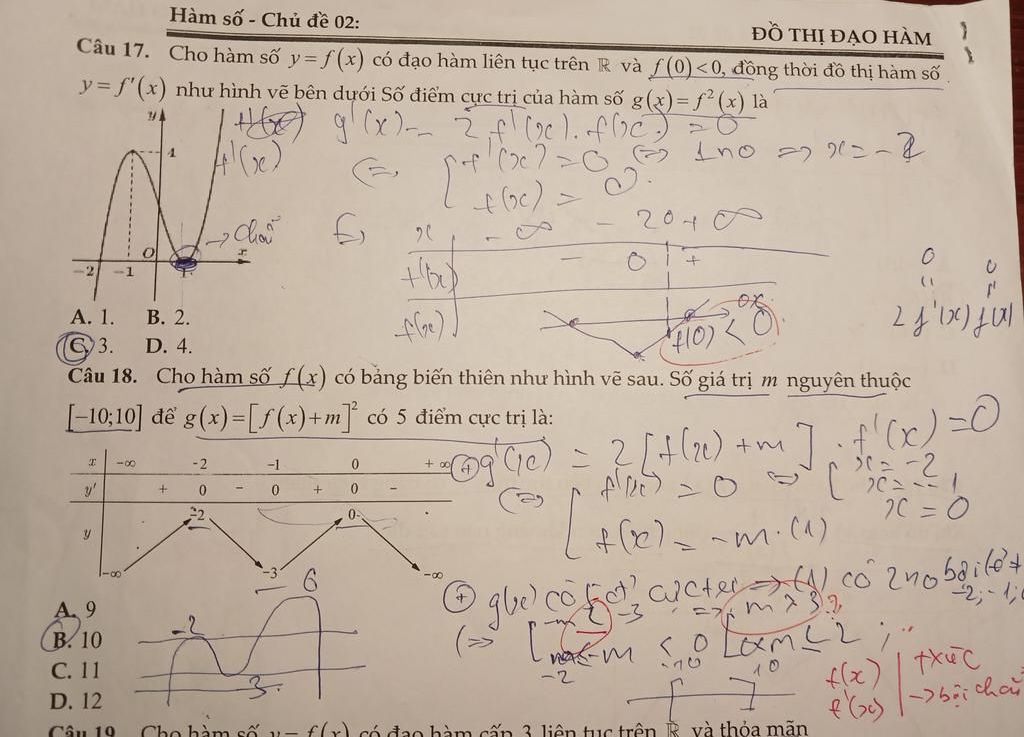 Hàm số - Chủ đề 02:
ĐỒ THỊ ĐẠO HÀM
Câu 17. Cho hàm số y = f(x) có đạo hàm liên tục trên ℝ và f(0)<0, đồng thời đồ thị hàm số
y = f'(x) như hình vẽ bên dưới Số điểm cực trị của hàm số g(x) = f²(x) là
g'(x) = 2 f'(x). f(x) = 0
y 4 f'(x)
f'(x) = 0 <=> 1 no => x = -2
f(x) = 0
→ chẵn
O x
-2 -1
x -∞ -2 0 +∞
f'(x) - 0 +
f(x) f(0) < 0 ox
0 0
2 f'(x) f(x)
A. 1. B. 2.
C. 3. D. 4.
Câu 18. Cho hàm số f(x) có bảng biến thiên như hình vẽ sau. Số giá trị m nguyên thuộc
[-10;10] để g(x) = [f(x)+m]² có 5 điểm cực trị là:
+ g'(x) = 2 [f(x) + m] . f'(x) = 0
x -∞ -2 -1 0 +∞
y' + 0 - 0 + 0 -
y -2 0
-∞ -3 -∞
<=> f'(x) = 0 <=> x = -2
x = -1
x = 0
f(x) = -m (1)
+ g(x) có 5 cực trị => (1) có 2 no bội lẻ ≠ -2, -1, 0
A. 9
B. 10
C. 11
D. 12
-2 0
-3
-m < -3 => m > 3 ?
-2 ≤ -m < 0 0 < m ≤ 2
-10 10
f(x)
f'(x)
+ xúc
→ bội chẵn
Câu 19. Cho hàm số y = f(x) có đạo hàm cấp 3 liên tục trên ℝ và thỏa mãn